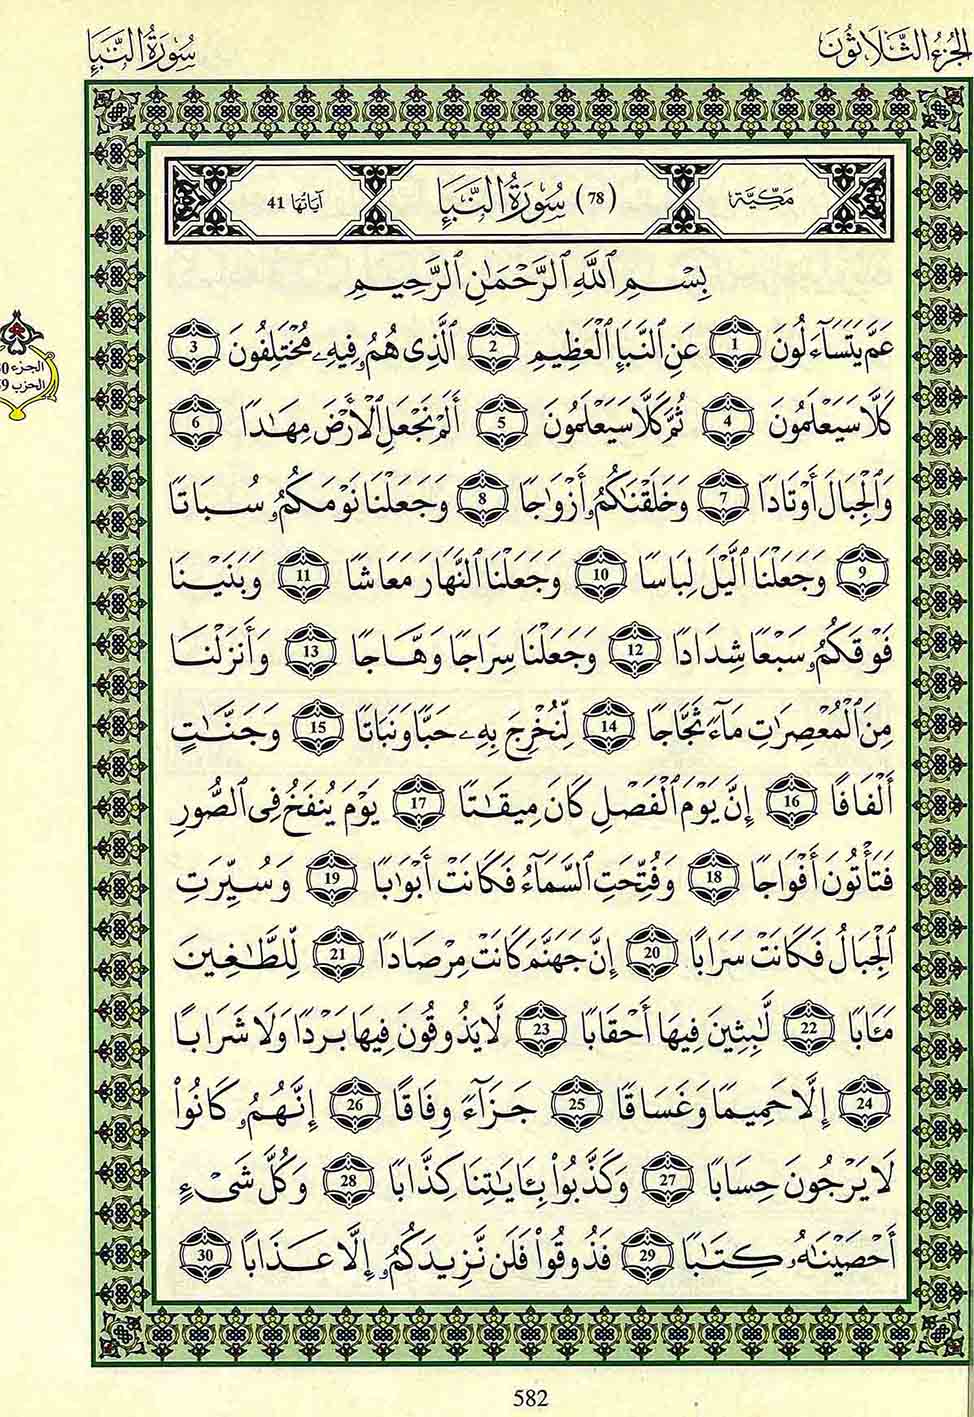 الجزء الثلاثون
سورة النبإ
مكية
(78) سُورَةُ النَّبَإِ
آياتها 41
بِسْمِ اللَّهِ الرَّحْمَٰنِ الرَّحِيمِ
عَمَّ يَتَسَآءَلُونَ 1 عَنِ النَّبَإِ الْعَظِيمِ 2 الَّذِي هُمُۥ فِيهِۦ مُخْتَلِفُونَ 3
كَلَّا سَيَعْلَمُونَ 4 ثُمَّ كَلَّا سَيَعْلَمُونَ 5 أَلَمْ نَجْعَلِ الْأَرْضَ مِهَٰدًا 6
وَالْجِبَالَ أَوْتَادًا 7 وَخَلَقْنَٰكُمُۥ أَزْوَٰجًا 8 وَجَعَلْنَا نَوْمَكُمُۥ سُبَاتًا
9 وَجَعَلْنَا الَّيْلَ لِبَاسًا 10 وَجَعَلْنَا النَّهَارَ مَعَاشًا 11 وَبَنَيْنَا
فَوْقَكُمُۥ سَبْعًا شِدَادًا 12 وَجَعَلْنَا سِرَاجًا وَهَّاجًا 13 وَأَنزَلْنَا
مِنَ الْمُعْصِرَٰتِ مَآءً ثَجَّاجًا 14 لِّنُخْرِجَ بِهِۦ حَبًّا وَنَبَاتًا 15 وَجَنَّٰتٍ
أَلْفَافًا 16 إِنَّ يَوْمَ الْفَصْلِ كَانَ مِيقَٰتًا 17 يَوْمَ يُنفَخُ فِي الصُّورِ
فَتَأْتُونَ أَفْوَاجًا 18 وَفُتِّحَتِ السَّمَآءُ فَكَانَتْ أَبْوَٰبًا 19 وَسُيِّرَتِ
الْجِبَالُ فَكَانَتْ سَرَابًا 20 إِنَّ جَهَنَّمَ كَانَتْ مِرْصَادًا 21 لِّلطَّٰغِينَ
مَـَٔابًا 22 لَّٰبِثِينَ فِيهَا أَحْقَابًا 23 لَّا يَذُوقُونَ فِيهَا بَرْدًا وَلَا شَرَابًا
24 إِلَّا حَمِيمًا وَغَسَاقًا 25 جَزَآءً وِفَاقًا 26 إِنَّهُمُۥ كَانُوا۟
لَا يَرْجُونَ حِسَابًا 27 وَكَذَّبُوا۟ بِـَٔايَٰتِنَا كِذَّابًا 28 وَكُلَّ شَىْءٍ
أَحْصَيْنَٰهُۥ كِتَٰبًا 29 فَذُوقُوا۟ فَلَن نَّزِيدَكُمُۥ إِلَّا عَذَابًا 30
الجزء
الحزب
582